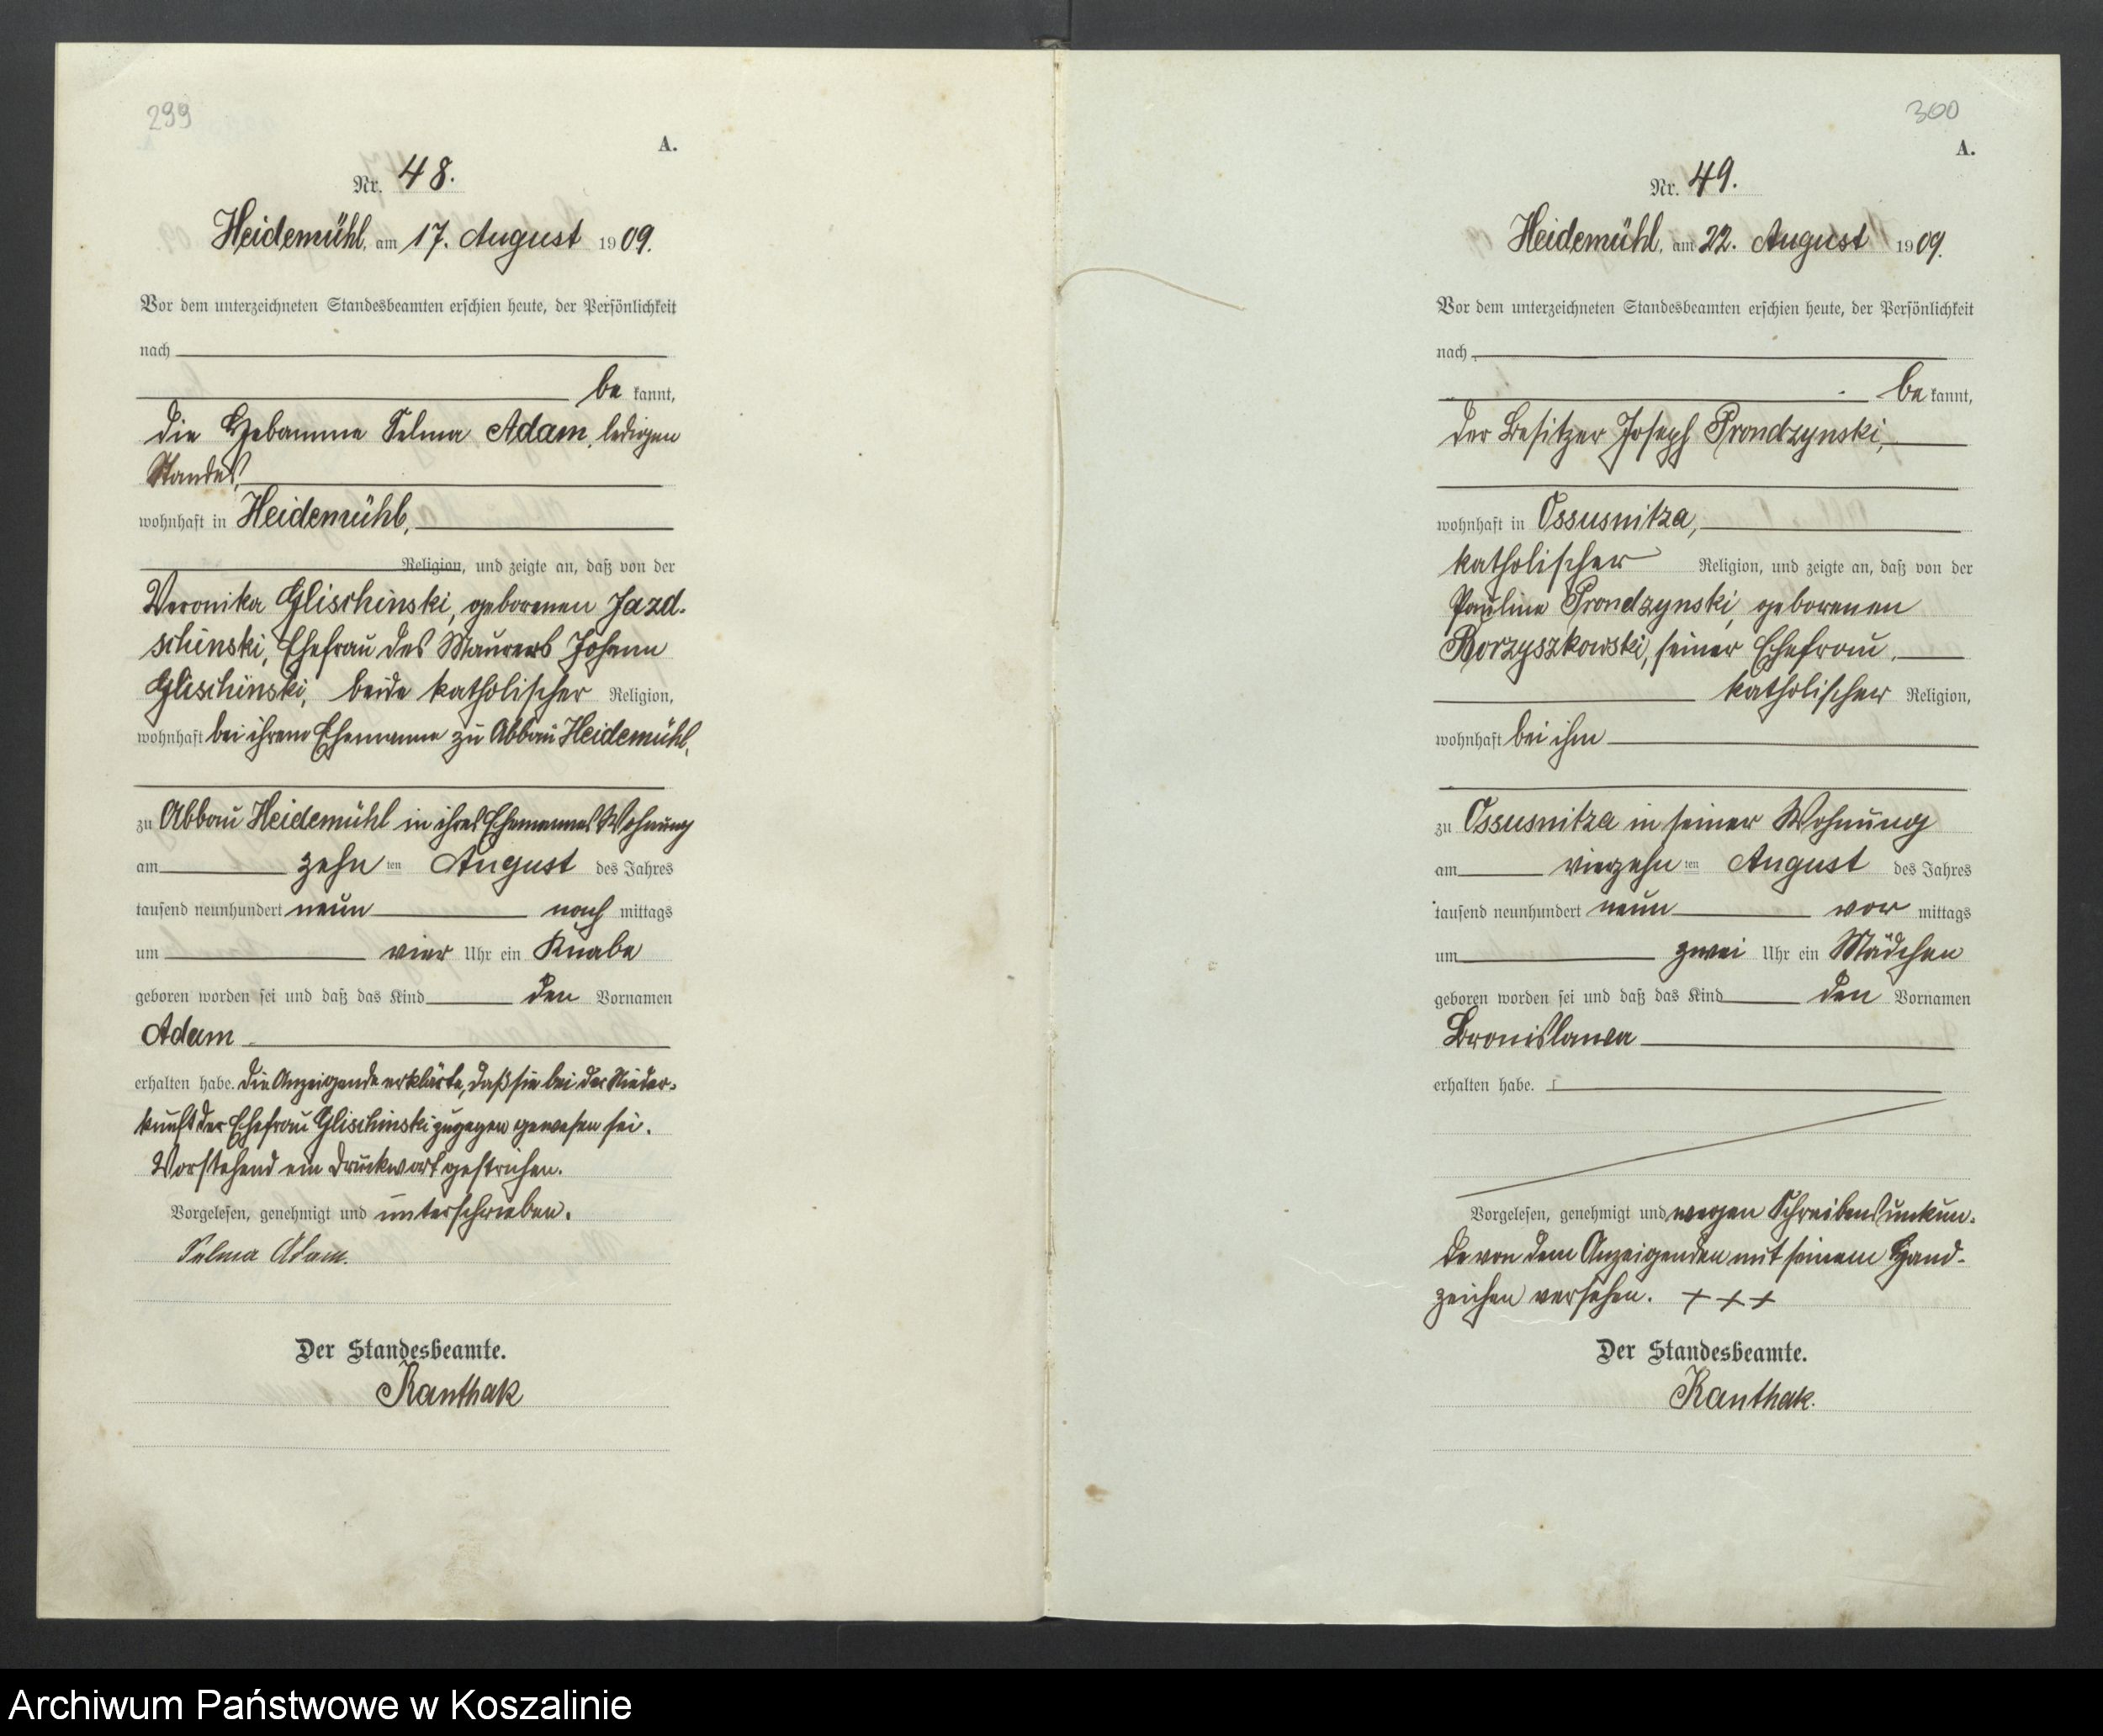 299
A.
Nr. 48.
Heidemühl, am 17. August 1909.
Vor dem unterzeichneten Standesbeamten erschien heute, der Persönlichkeit
nach
be kannt,
die Hebamme Selma Adam, ledigen
Standes,
wohnhaft in Heidemühl,
Religion, und zeigte an, daß von der
Veronika Glischinski, geborenen Jazd-
schinski, Ehefrau des Maurers Johann
Glischinski, beide katholischer Religion,
wohnhaft bei ihrem Ehemanne zu Abbau Heidemühl,
zu Abbau Heidemühl in ihres Ehemannes Wohnung
am zehn ten August des Jahres
tausend neunhundert neun nach mittags
um vier Uhr ein Knabe
geboren worden sei und daß das Kind den Vornamen
Adam
erhalten habe. Die Anzeigende erklärte, daß sie bei der Nieder-
kunft der Ehefrau Glischinski zugegen gewesen sei.
Vorstehend ein Druckwort gestrichen.
Vorgelesen, genehmigt und unterschrieben.
Selma Adam.
Der Standesbeamte.
Kanthak
300
A.
Nr. 49.
Heidemühl, am 22. August 1909.
Vor dem unterzeichneten Standesbeamten erschien heute, der Persönlichkeit
nach
be kannt,
der Besitzer Joseph Prondzynski,
wohnhaft in Ossusnitza,
katholischer Religion, und zeigte an, daß von der
Pauline Prondzynski, geborenen
Borzyszkowski, seiner Ehefrau,
katholischer Religion,
wohnhaft bei ihm
zu Ossusnitza in seiner Wohnung
am vierzehn ten August des Jahres
tausend neunhundert neun vor mittags
um zwei Uhr ein Mädchen
geboren worden sei und daß das Kind den Vornamen
Bronislawa
erhalten habe.
Vorgelesen, genehmigt und wegen Schreibensunkun-
de von dem Anzeigenden mit seinem Hand-
zeichen versehen. + + +
Der Standesbeamte.
Kanthak.
Archiwum Państwowe w Koszalinie